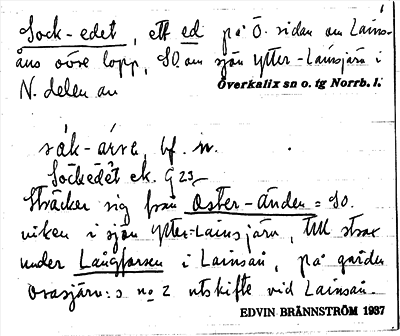 Sock-edet, ett ed på Ö. sidan om Lains-
åns övre lopp, SO. om sjön Ytter-Lainsjärv i
N. delen av Överkalix sn o. tg Norrb. l.
bf. n.
Sockedet ek. G 25
Sträcker sig från Öster-änden = SO.
viken i sjön Ytter-Lainsjärv, till strax
under Långforsen i Lainsån, på gården
Orasjärv:s no 2 utskifte vid Lainsån.
EDVIN BRÄNNSTRÖM 1937